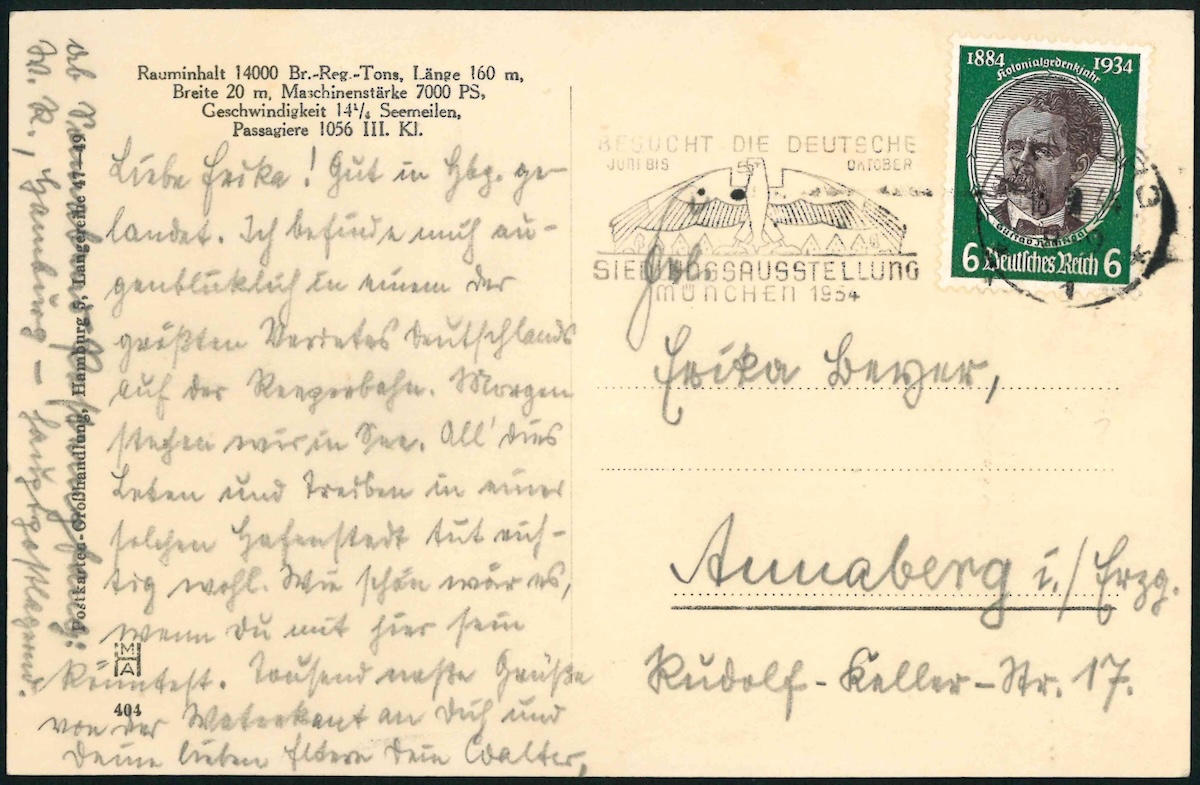 Rauminhalt 14000 Br.-Reg.-Tons, Länge 160 m,
Breite 20 m, Maschinenstärke 7000 PS,
Geschwindigkeit 14¼ Seemeilen,
Passagiere 1056 III. Kl.
Liebe Erika! Gut in Hbg. ge-
landet. Ich befinde mich au-
genblicklich in einem der
größten Deutschlands
auf der Reeperbahn. Morgen
stechen wir in See. All' dies
Leben und Treiben in einer
solchen Hafenstadt tut rich-
tig wohl. Wie schön wär es,
wenn Du mit hier sein
könntest. Tausend naße Grüße
von der Waterkant an Dich und
Deine lieben Eltern Dein Walter,
ab
W. K., Hamburg – hauptpostlagernd.
Postkarten-Großhandlung, Hamburg 5, Langereihe 47-49
M
A
404
BESUCHT DIE DEUTSCHE
JUNI BIS OKTOBER
SIEDLUNGSAUSSTELLUNG
MÜNCHEN 1934
1884 1934
Kolonialgedenkjahr
Gustav Nachtigal
6 Deutsches Reich 6
1
Frl.
Erika Beyer,
Annaberg i./Erzg.
Rudolf-Keller-Str. 17.